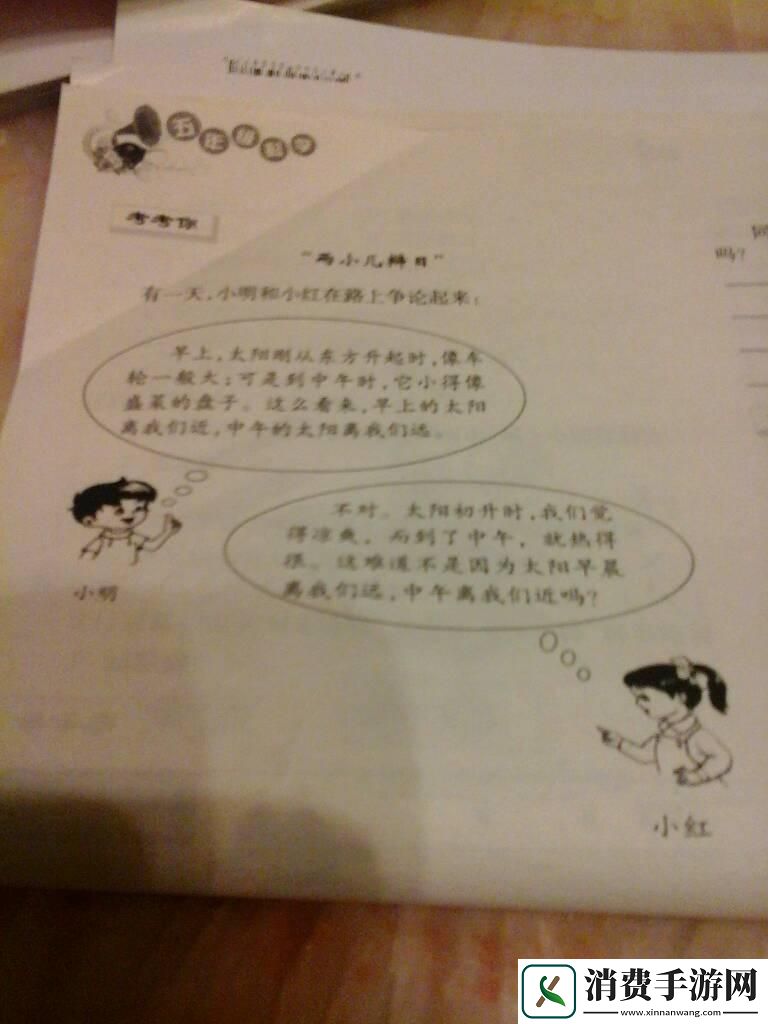 五年级科学
考考你
"两小儿辩日"
有一天,小明和小红在路上争论起来:
早上,太阳刚从东方升起时,像车
轮一般大;可是到中午时,它小得像
盛菜的盘子。这么看来,早上的太阳
离我们近,中午的太阳离我们远
小明
不对。太阳初升时,我们觉
得凉爽,而到了中午,就热得
很。这难道不是因为太阳早晨
离我们远,中午离我们近吗?
小红
吗?
消费手游网
www.xinnanwang.com